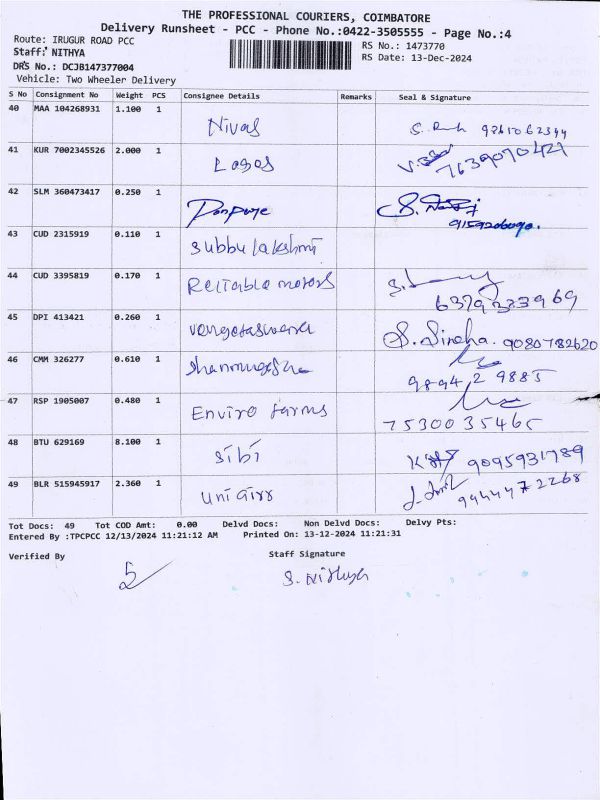 THE PROFESSIONAL COURIERS, COIMBATORE
Delivery Runsheet - PCC - Phone No.:0422-3505555 - Page No.:4
Route: IRUGUR ROAD PCC
RS No.: 1473770
Staff: NITHYA
RS Date: 13-Dec-2024
DRS No.: DCJB147377004
Vehicle: Two Wheeler Delivery
S No Consignment No Weight PCS Consignee Details Remarks Seal & Signature
40 MAA 104268931 1.100 1 Nivas
41 KUR 7002345526 2.000 1 Lagos 7639070421
42 SLM 360473417 0.250 1
43 CUD 2315919 0.110 1 Subbulakshmi
44 CUD 3395819 0.170 1 Reliable motors 6379323969
45 DPI 413421 0.260 1 9080782620
46 CMM 326277 0.610 1 98942 9885
47 RSP 1905007 0.480 1 Enviro farms 7530035465
48 BTU 629169 8.100 1 Sibi 9095931789
49 BLR 515945917 2.360 1 9444472268
Tot Docs: 49 Tot COD Amt: 0.00 Delvd Docs: Non Delvd Docs: Delvy Pts:
Entered By :TPCPCC 12/13/2024 11:21:12 AM Printed On: 13-12-2024 11:21:31
Verified By Staff Signature
S. Nithya